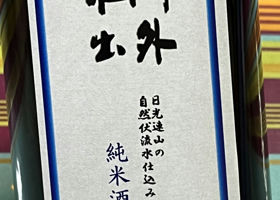 外
出
日光連山の
自然伏流水仕込み
純米酒